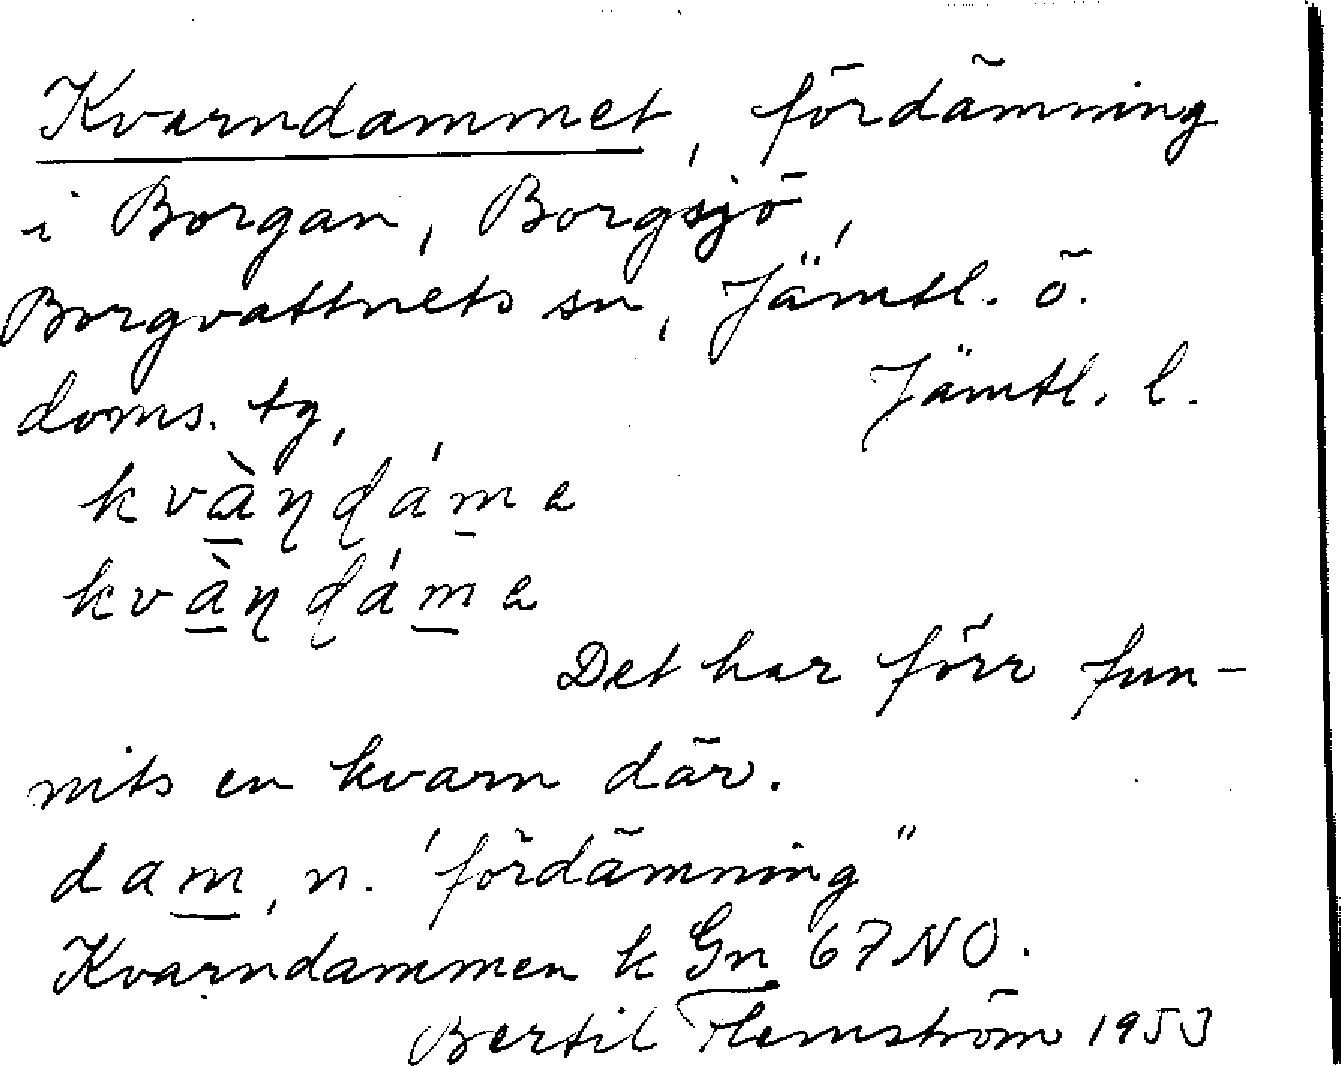 Kvarndammet, fördämning
i Borgan, Borgsjö,
Borgvattnets sn, Jämtl. ö.
doms. tg, Jämtl. l.
kvàṇḍám̲e
kvàṇḍám̲e
Det har förr fun-
nits en kvarn där.
dam̲, n. 'fördämning"
Kvarndammen k Gn 67 NO.
Bertil Flemström 1953